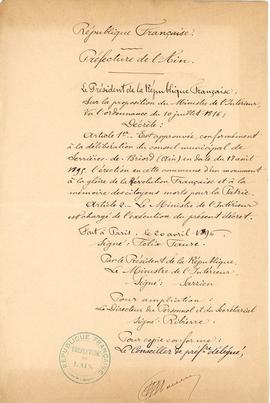 République Française.
Préfecture de l'Ain.
Le Président de la République Française,
Sur la proposition du Ministre de l'Intérieur,
Vu l'ordonnance du 10 juillet 1816;
Décrète:
Article 1er - Est approuvée, conformément
à la délibération du conseil municipal de
Serrières-de-Briord (Ain) en date du
l'érection en cette commune d'un monument
à la gloire de la Révolution Française et à la
mémoire des citoyens morts pour la Patrie.
Article 2. - Le Ministre de l'Intérieur
est chargé de l'exécution du présent décret.
Fait à Paris, le 20 avril
Signé: Félix Faure.
Par le Président de la République,
Le Ministre de l'Intérieur
Signé: Sarrien
Pour ampliation:
Le Directeur du Personnel et du Secrétariat
Signé: Ribierre.
Pour copie conforme:
Le Conseiller de préfre délégué,
RÉPUBLIQUE FRANÇAISE
PRÉFECTURE DE L'AIN